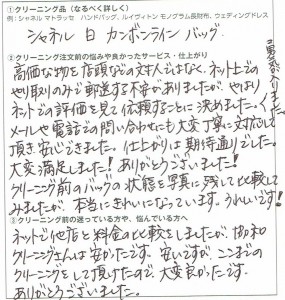 ①クリーニング品（なるべく詳しく）
例：シャネル マトラッセ ハンドバッグ、ルイヴィトン モノグラム長財布、ウェディングドレス
シャネル 白 カンボンライン バッグ
②クリーニング注文前の悩みや良かったサービス・仕上がり
高価な物を店頭などの対人ではなく、ネット上での
やり取りのみで郵送する不安がありましたが、やはり
ネットでの評価を見て依頼することに決めました。
メールや電話での問い合わせにも大変丁寧に対応して
頂き安心できました。仕上がりは期待通りでした。
大変満足しました！ありがとうございました！
クリーニング前のバッグの状態を写真に残して比較して
みましたが、本当にきれいになっています。うれしいです！
③クリーニング前の迷っている方や、悩んでいる方へ
ネットで他店と料金の比較をしましたが、
クリーニングさんは安かったです。安いですが、ここまでの
クリーニングをして頂けたので大変良かったです。
ありがとうございました。